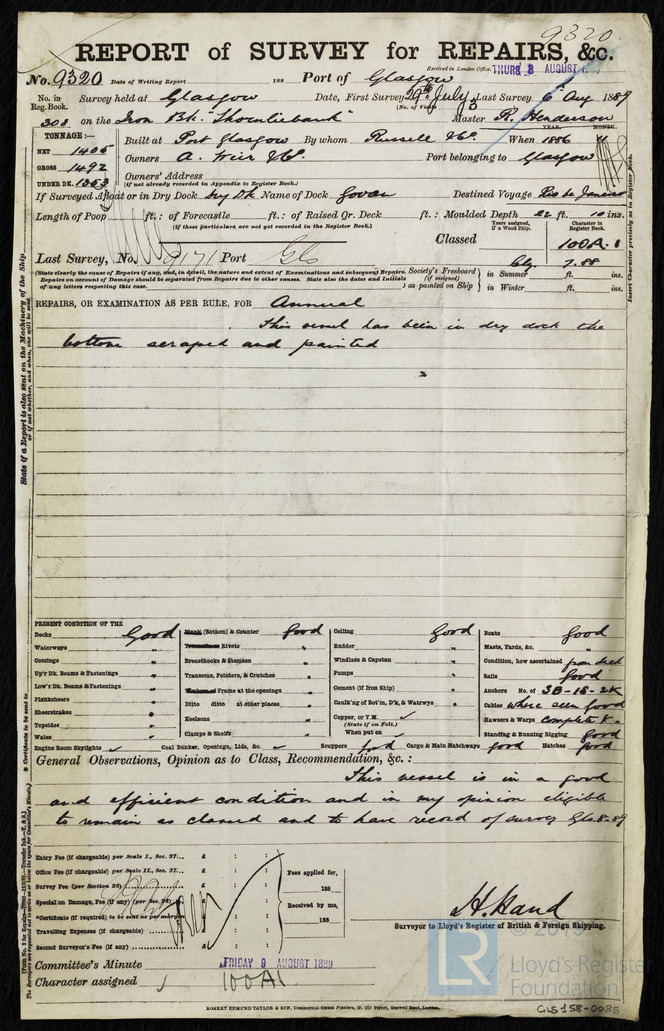 9320.
REPORT of SURVEY for REPAIRS, &c.
Received in London Office, THURS 8 AUGUST 1889
No. 9320 Date of Writing Report 188 Port of Glasgow
No. in Reg. Book. Survey held at Glasgow Date, First Survey 29th July Last Survey 6 Aug 1889
(No. of Visits 3)
303 on the Iron Bk. "Thornliebank" Master R. Henderson
TONNAGE:—
NET 1405
GROSS 1492
UNDER DK. 1353
YEAR. MONTH.
Built at Port Glasgow By whom Russell & Co. When 1886
Owners A. Weir & Co. Port belonging to Glasgow
Owners' Address
(if not already recorded in Appendix to Register Book.)
If Surveyed Afloat or in Dry Dock Dry Dk Name of Dock Govan Destined Voyage Rio de Janeiro
Length of Poop ft.: of Forecastle ft.: of Raised Qr. Deck ft.: Moulded Depth 22 ft. 10 ins.
(if these particulars are not yet recorded in the Register Book.)
Years assigned, if a Wood Ship. Character in Register Book.
Classed 100A.1
Last Survey, No. 9171 Port Gls
Cly. 7.88
(State clearly the cause of Repairs if any, and, in detail, the nature and extent of Examinations and subsequent Repairs.
Repairs on account of Damage should be separated from Repairs due to other causes. State also the dates and Initials
of any letters respecting this case.
Society's Freeboard (if assigned) as painted on Ship in Summer ft. ins.
in Winter ft. ins.
REPAIRS, OR EXAMINATION AS PER RULE, FOR Annual
This vessel has been in dry dock the
bottom scraped and painted
PRESENT CONDITION OF THE
Decks Good
Waterways "
Comings "
Up'r Dk. Beams & Fastenings "
Low'r Dk. Beams & Fastenings "
Planksheers "
Sheerstrakes "
Topsides "
Wales "
Engine Room Skylights ✓
Plank (Bottom) & Counter Good
Treenails or Rivets "
Breasthooks & Stemson "
Transoms, Pointers, & Crutches "
Timbers of Frame at the openings "
Ditto ditto at other places "
Keelsons "
Clamps & Shelfs "
Coal Bunker, Openings, Lids, &c. ✓
Ceiling Good
Rudder "
Windlass & Capstan "
Pumps "
Cement (if Iron Ship) "
Caulk'ng of Bot'm, D'k, & Watrwys "
Copper, or Y.M. ✓
(State if on Felt.)
When put on ✓
Scuppers Good Cargo & Main Hatchways Good Hatches Good
Boats Good
Masts, Yards, &c. "
Condition, how ascertained from deck
Sails Good
Anchors No. of 3B-1S-2K
Cables where seen Good
Hawsers & Warps complete & "
Standing & Running Rigging Good
General Observations, Opinion as to Class, Recommendation, &c.:
This vessel is in a good
and efficient condition and in my opinion eligible
to remain as classed and to have record of survey Gls. 8-89
Entry Fee (if chargeable) per Scale I., Sec. 27... £ : :
Office Fee (if chargeable) per Scale II., Sec. 27... £ : :
Survey Fee (per Section 28) £ : :
Special on Damage, Fee (if any) (per Sec. 28) £ : :
Certificate (if required) to be sent as per margin £ : :
Travelling Expenses (if chargeable) £ : :
Second Surveyor's Fee (if any) £ : :
Fees applied for,
188
Received by me,
188
H. Hand
Surveyor to Lloyd's Register of British & Foreign Shipping.
Committee's Minute FRIDAY 9 AUGUST 1889
Character assigned 100A1
ROBERT EDMUND TAYLOR & SON, Commercial Steam Printers, 19, Old Street, Goswell Road, London.
State if a Report is also sent on the Machinery of the Ship
or if not whether, and when, one will be sent
Insert Character precisely as in Register Book.
LR
Lloyd's Register
Foundation
GLS158-0085